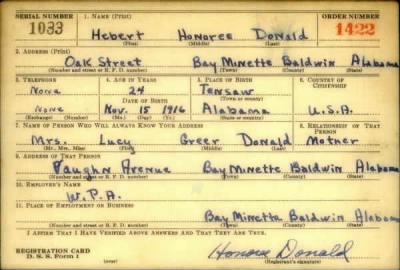 SERIAL NUMBER 1. NAME (Print) ORDER NUMBER
1033 Hebert Honoree Donald 1422
(First) (Middle) (Last)
2. ADDRESS (Print)
Oak Street Bay Minette Baldwin Alabama
(Number and street or R. F. D. number) (Town) (County) (State)
3. TELEPHONE 4. AGE IN YEARS 5. PLACE OF BIRTH 6. COUNTRY OF CITIZENSHIP
None 24 Tensaw
DATE OF BIRTH (Town or county)
None Nov. 15 1916 Alabama U.S.A.
(Exchange) (Number) (Mo.) (Day) (Yr.) (State or country)
7. NAME OF PERSON WHO WILL ALWAYS KNOW YOUR ADDRESS 8. RELATIONSHIP OF THAT PERSON
Mrs. Lucy Greer Donald Mother
(Mr., Mrs., Miss) (First) (Middle) (Last)
9. ADDRESS OF THAT PERSON
Vaughn Avenue Bay Minette Baldwin Alabama
(Number and street or R. F. D. number) (Town) (County) (State)
10. EMPLOYER'S NAME
W.P.A.
11. PLACE OF EMPLOYMENT OR BUSINESS
Bay Minette Baldwin Alabama
(Number and street or R. F. D. number) (Town) (County) (State)
I AFFIRM THAT I HAVE VERIFIED ABOVE ANSWERS AND THAT THEY ARE TRUE.
REGISTRATION CARD
D. S. S. Form 1 Honoree Donald
(Registrant's signature)